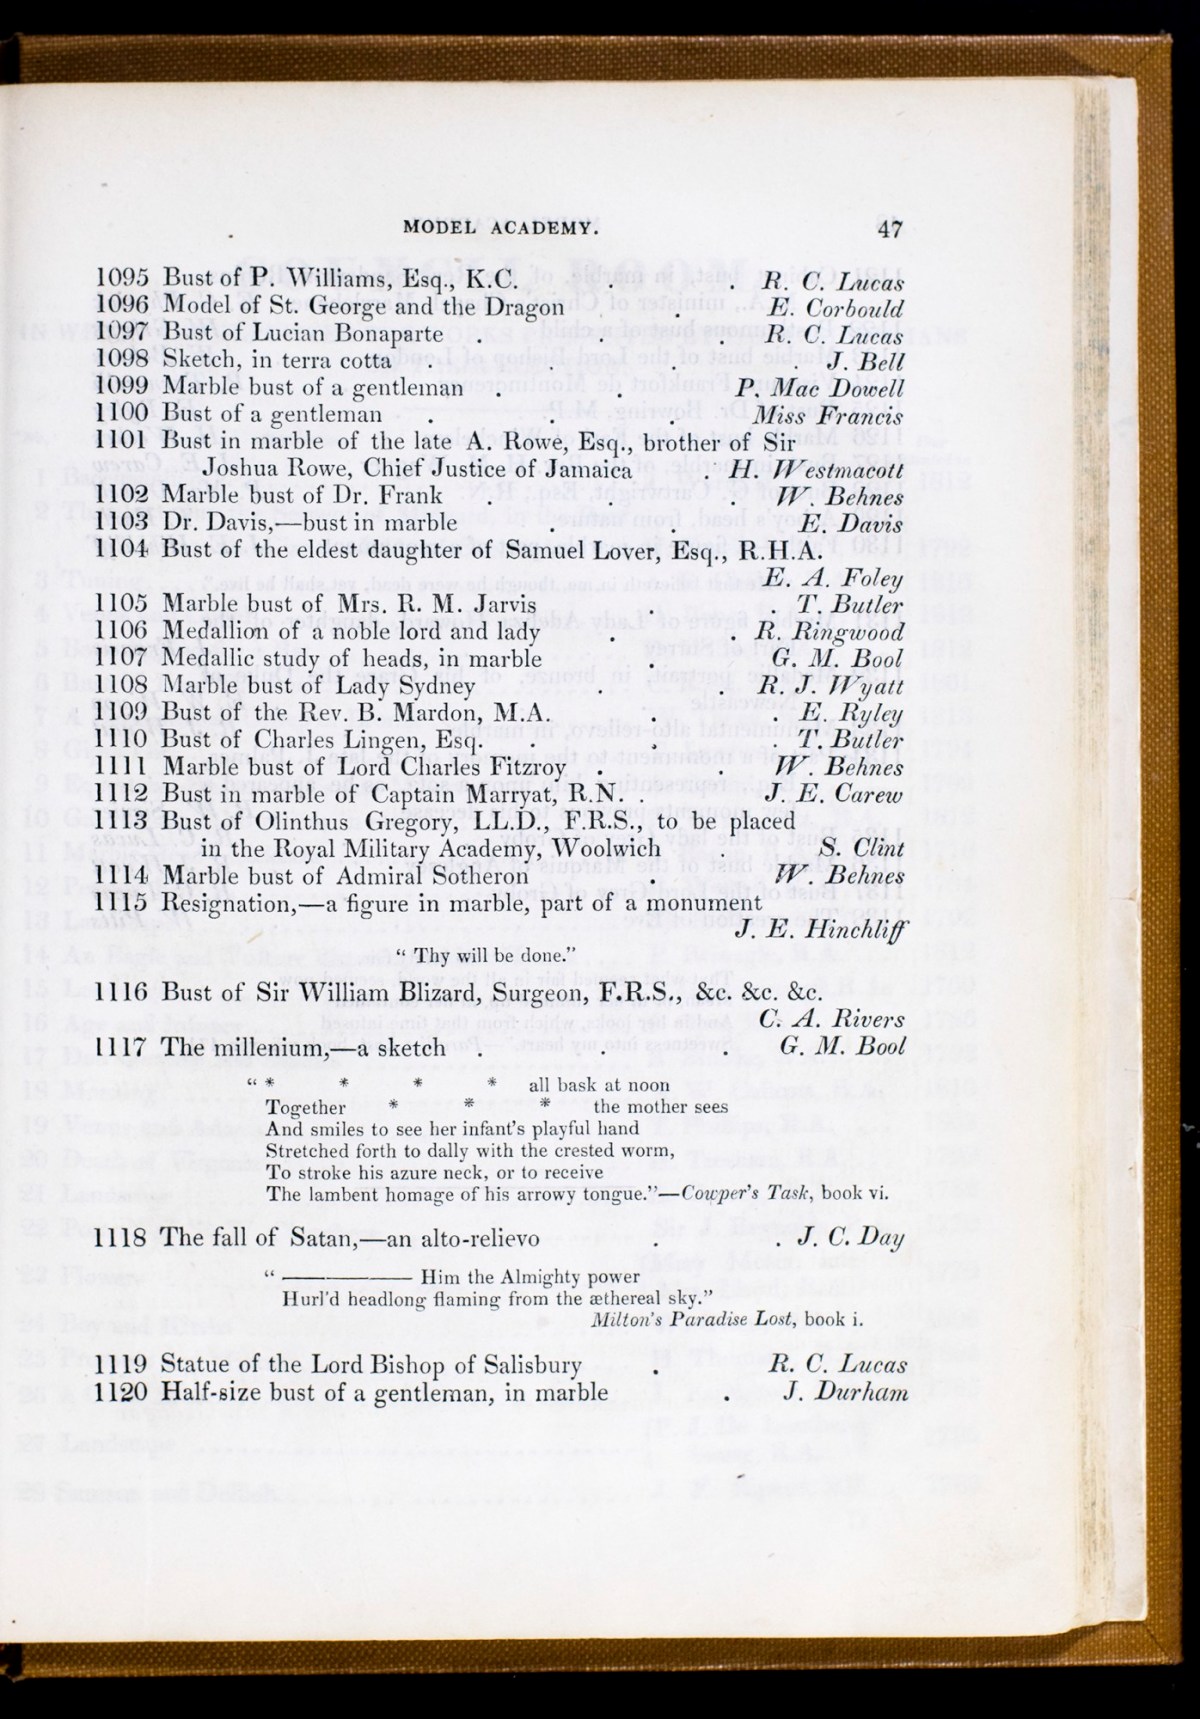 MODEL ACADEMY. 47
1095 Bust of P. Williams, Esq., K.C. . . R. C. Lucas
1096 Model of St. George and the Dragon . E. Corbould
1097 Bust of Lucian Bonaparte . . . R. C. Lucas
1098 Sketch, in terra cotta . . . . J. Bell
1099 Marble bust of a gentleman . . P. Mac Dowell
1100 Bust of a gentleman . . . Miss Francis
1101 Bust in marble of the late A. Rowe, Esq., brother of Sir
Joshua Rowe, Chief Justice of Jamaica . H. Westmacott
1102 Marble bust of Dr. Frank . . . W. Behnes
1103 Dr. Davis,—bust in marble . . . E. Davis
1104 Bust of the eldest daughter of Samuel Lover, Esq., R.H.A.
E. A. Foley
1105 Marble bust of Mrs. R. M. Jarvis . . T. Butler
1106 Medallion of a noble lord and lady . . R. Ringwood
1107 Medallic study of heads, in marble . G. M. Bool
1108 Marble bust of Lady Sydney . . R. J. Wyatt
1109 Bust of the Rev. B. Mardon, M.A. . . E. Ryley
1110 Bust of Charles Lingen, Esq. . . T. Butler
1111 Marble bust of Lord Charles Fitzroy . . W. Behnes
1112 Bust in marble of Captain Marryat, R.N. . J. E. Carew
1113 Bust of Olinthus Gregory, LL.D., F.R.S., to be placed
in the Royal Military Academy, Woolwich . S. Clint
1114 Marble bust of Admiral Sotheron . . W Behnes
1115 Resignation,—a figure in marble, part of a monument
J. E. Hinchliff
“ Thy will be done.”
1116 Bust of Sir William Blizard, Surgeon, F.R.S., &c. &c. &c.
C. A. Rivers
1117 The millenium,—a sketch . . . G. M. Bool
“ * * * * all bask at noon
Together * * * the mother sees
And smiles to see her infant’s playful hand
Stretched forth to dally with the crested worm,
To stroke his azure neck, or to receive
The lambent homage of his arrowy tongue.”—Cowper’s Task, book vi.
1118 The fall of Satan,—an alto-relievo . . J. C. Day
“ ———— Him the Almighty power
Hurl’d headlong flaming from the æthereal sky.”
Milton’s Paradise Lost, book i.
1119 Statue of the Lord Bishop of Salisbury . R. C. Lucas
1120 Half-size bust of a gentleman, in marble . J. Durham